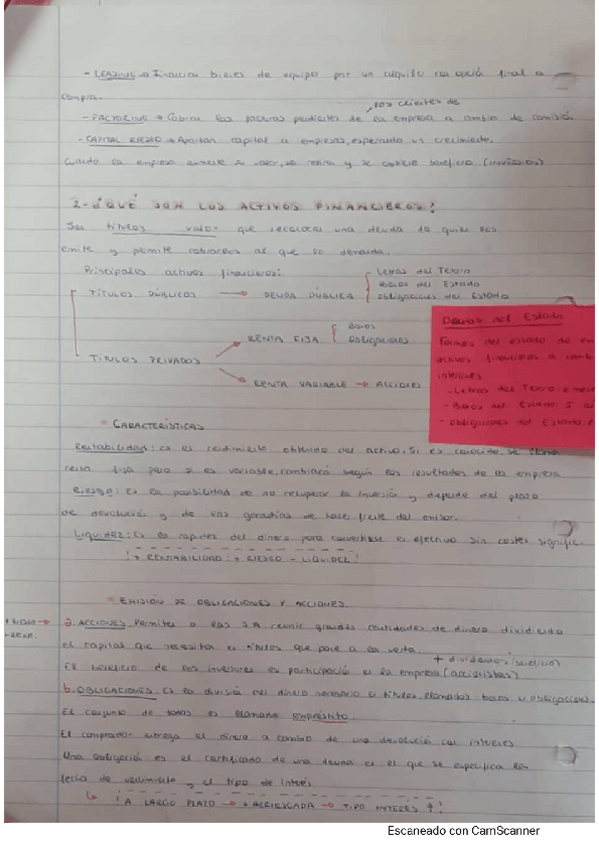 - LEASING → Financian bienes de equipo por un alquiler con opción final a
compra.
los clientes de
- FACTORING → Cobrar las facturas pendientes de la empresa a cambio de comisión
- CAPITAL RIESGO → Aportan capital a empresas, esperando un crecimiento.
Cuando la empresa aumente su valor, se retira y se obtiene beneficio (inversión)
2- ¿QUÉ SON LOS ACTIVOS FINANCIEROS?
Son títulos valor que reconocen una deuda de quien los
emite y permite cobrarlos al que lo demanda.
Principales activos financieros:
Letras del Tesoro
TÍTULOS PÚBLICOS → DEUDA PÚBLICA
Bonos del Estado
Obligaciones del Estado
RENTA FIJA
Bonos
Obligaciones
TÍTULOS PRIVADOS
RENTA VARIABLE → ACCIONES
Deudas del Estado
Formas del estado de
activos financieros a
intereses
- Letras del Tesoro
- Bonos del Estado: 5
- Obligaciones del Estado:
* CARACTERÍSTICAS
Rentabilidad: es el rendimiento obtenido del activo. Si es conocido, se llama
renta fija pero si es variable, cambiará según los resultados de la empresa
Riesgo: Es la posibilidad de no recuperar la inversión y depende del plazo
de devolución y de las garantías de hacer frente del emisor.
Liquidez: Es la rapidez del dinero para convertirse en efectivo sin costes signific.
! + RENTABILIDAD : + RIESGO - LIQUIDEZ !
* EMISIÓN DE OBLIGACIONES Y ACCIONES
+ RIESGO →
a. ACCIONES. Permiten a las S.A reunir grandes cantidades de dinero dividiendo
+ RENT.
el capital que necesitan en títulos que pone a la venta.
+ dividendos (beneficio)
El beneficio de los inversores es participación en la empresa (accionistas)
b. OBLIGACIONES. Es la división del dinero necesario en títulos llamados bonos u obligaciones.
El conjunto de todas es llamado empréstito.
El comprador entrega el dinero a cambio de una devolución con intereses
Una obligación es el certificado de una deuda en el que se especifica la
fecha de vencimiento y el tipo de interés
↳ ! A LARGO PLAZO → + ARRIESGADA → TIPO INTERÉS ↑ !
Escaneado con CamScanner